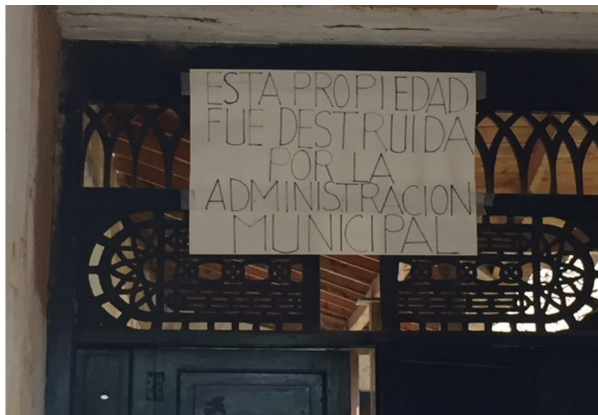 ESTA PROPIEDAD
FUE DESTRUIDA
POR LA
ADMINISTRACION
MUNICIPAL